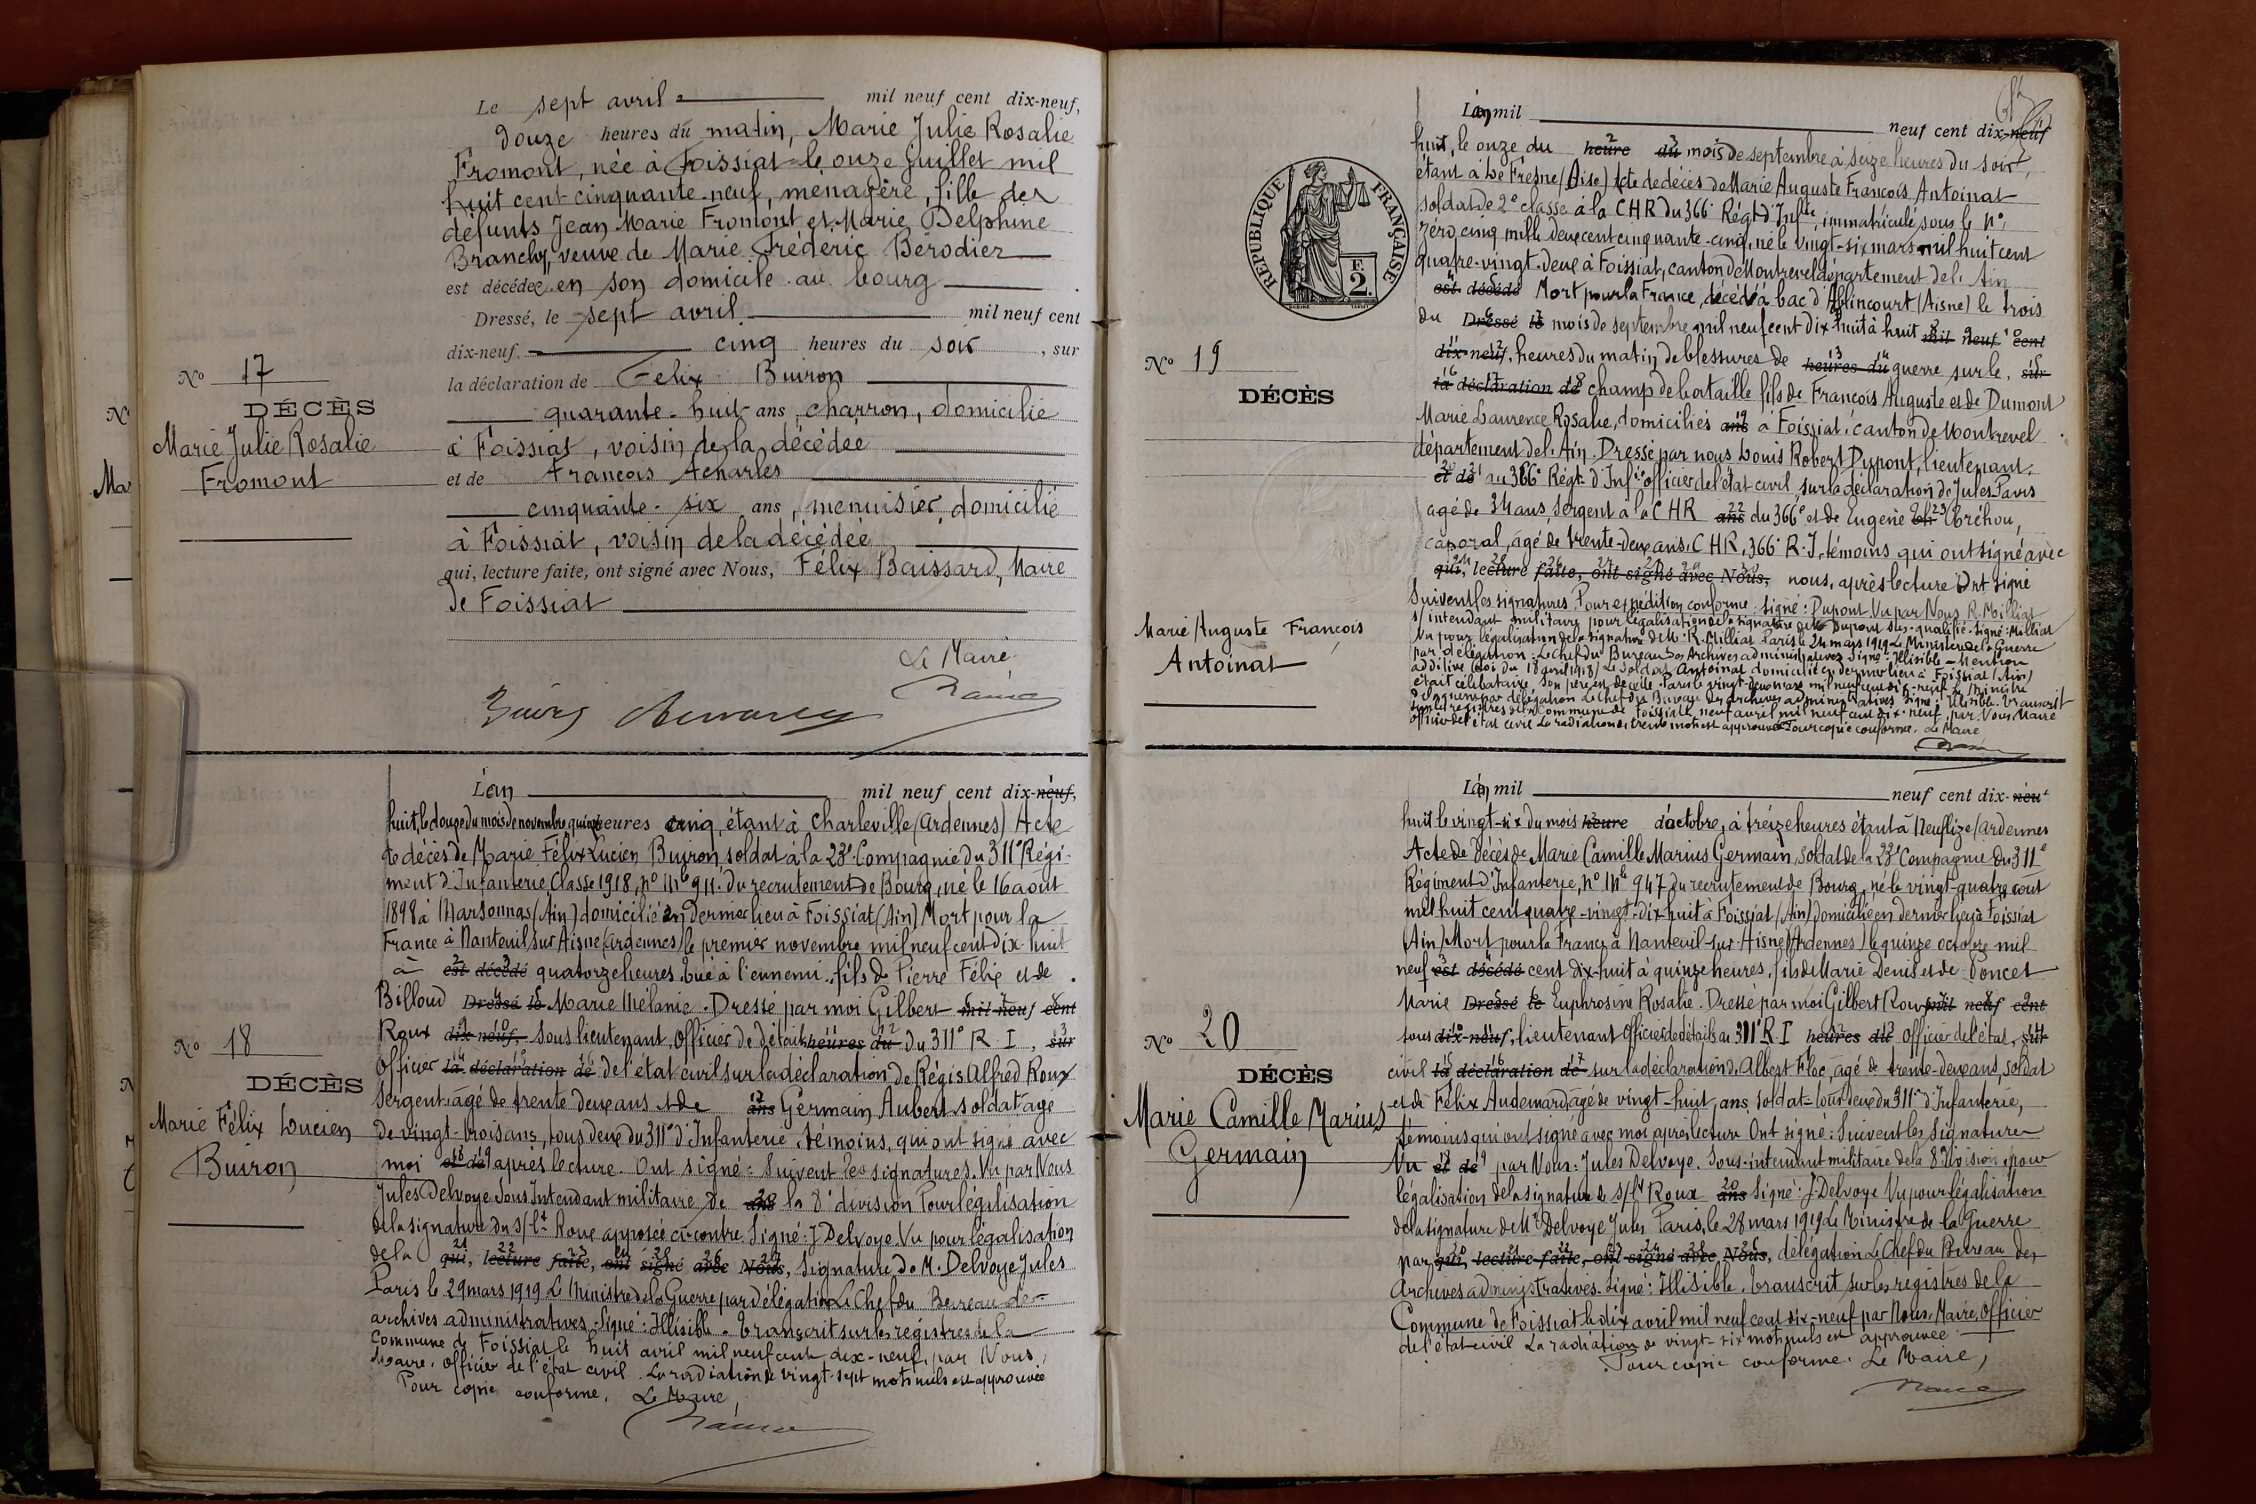 Le sept avril mil neuf cent dix-neuf,
douze heures du matin, Marie Julie Rosalie
Fromont, née à Foissiat le onze juillet mil
huit cent cinquante-neuf, ménagère, fille des
défunts Jean Marie Fromont et Marie Delphine
Branchy, veuve de Marie Frédéric Bérodier
est décédée en son domicile au bourg
Dressé, le sept avril mil neuf cent
dix-neuf, cinq heures du soir, sur
la déclaration de Félix Buiron
quarante-huit ans, charron, domicilié
à Foissiat, voisin de la décédée
et de François
cinquante-six ans, menuisier, domicilié
à Foissiat, voisin de la décédée
qui, lecture faite, ont signé avec Nous, Félix Baissard, Maire
de Foissiat
Le Maire
No 17
DÉCÈS
Marie Julie Rosalie
Fromont
L'an mil neuf cent dix-neuf,
huit, le douze du mois de novembre quinze heures cinq, étant à Charleville (Ardennes) Acte
de décès de Marie Félix Lucien Buiron, soldat à la 23e Compagnie du 311e Régi-
ment d'Infanterie, Classe 1918, no mle 911 du recrutement de Bourg, né le 16 août
1898 à Marsonnas (Ain) domicilié en dernier lieu à Foissiat (Ain) Mort pour la
France à Nanteuil sur Aisne (Ardennes) le premier novembre mil neuf cent dix-huit
à est décédé quatorze heures, tué à l'ennemi, fils de Pierre Félix et de
Billoud Dressé le Marie Mélanie. Dressé par moi Gilbert mil neuf cent
Roux dix-neuf, sous lieutenant, Officier de détail heures du du 311e R I, sur
Officier la déclaration de de l'état civil sur la déclaration de Régis Alfred Roux
Sergent, âgé de trente deux ans et de ans Germain Aubert soldat âgé
de vingt-trois ans, tous deux du 311e d'Infanterie, témoins, qui ont signé avec
moi et de après lecture. Ont signé: Suivent les signatures. Vu par Nous
Jules Delvoye Sous Intendant militaire de ans la 8e division Pour légalisation
de la signature du s/lt Roux apposée ci-contre. Signé: J Delvoye. Vu pour légalisation
de la qui, lecture faite, ont signé avec Nous, Signature de M. Delvoye Jules
Paris le 29 mars 1919 Le Ministre de la Guerre par délégation Le Chef du Bureau des
archives administratives. Signé: Illisible. Transcrit sur les registres de la
Commune de Foissiat le huit avril mil neuf cent dix-neuf, par Nous,
Maire, officier de l'état civil. La radiation de vingt-sept mots nuls est approuvée
Pour copie conforme. Le Maire,
No 18
DÉCÈS
Marie Félix Lucien
Buiron
RÉPUBLIQUE FRANÇAISE
F
2
L'an mil neuf cent dix-neuf
huit, le onze du heure du mois de septembre à seize heures du soir,
étant à Le Fresne (Oise) Acte de décès de Marie Auguste François Antoinat
soldat de 2e classe à la CHR du 366e Régt d'Infie, immatriculé sous le no
zéro, cinq mille deux cent cinquante-cinq, né le vingt-six mars mil huit cent
quatre-vingt-deux à Foissiat, canton de Montrevel département de l'Ain
est décédé Mort pour la France, décédé à bac d'Ablincourt (Aisne) le trois
du Dressé le mois de septembre mil neuf cent dix huit à huit mil neuf cent
dix-neuf, heures du matin de blessures de heures du guerre sur le, sur
la déclaration de champ de bataille fils de François Auguste et de Dumont
Marie Laurence Rosalie, domiciliés ans à Foissiat, canton de Montrevel
département de l'Ain. Dressé par nous Louis Robert Dupont, lieutenant
et de au 366e Régt d'Infie officier de l'état civil, sur la déclaration de Jules Pavis
âgé de 34 ans, Sergent à la CHR ans du 366e et de Eugène Bréhou,
caporal, âgé de trente-deux ans, CHR, 366e R.I, témoins qui ont signé avec
qui, lecture faite, ont signé avec Nous, nous, après lecture Ont signé
Suivent les signatures. Pour expédition conforme. Signé: Dupont Vu par Nous R. Milliat
s/intendant militaire pour légalisation de la signature de M. Dupont sus-qualifié. Signé: Milliat
Vu pour légalisation de la signature de M. R. Milliat Paris le 24 mars 1919 Le Ministre de la Guerre
par délégation: Le Chef du Bureau des Archives administratives Signé: Illisible - Mention
additive (Loi du 18 avril 1918) Le Soldat Antoinat domicilié en dernier lieu à Foissiat (Ain)
était célibataire. Son père est décédé. Paris le vingt-deux mars mil neuf cent dix-neuf le Ministre
de la guerre par délégation Le Chef du Bureau des archives administratives Signé: Illisible. Transcrit
sur les registres de la Commune de Foissiat le neuf avril mil neuf cent dix-neuf, par Nous, Maire
officier de l'état civil La radiation de trente mots est approuvée Pour copie conforme. Le Maire
No 19
DÉCÈS
Marie Auguste François
Antoinat
L'an mil neuf cent dix-neuf
huit le vingt-six du mois heure d'octobre, à treize heures étant à Neuflize (Ardennes
Acte de décès de Marie Camille Marius Germain, soldat de la 23e Compagnie du 311e
Régiment d'Infanterie, no mle 947 du recrutement de Bourg, né le vingt-quatre août
mil huit cent quatre-vingt-dix-huit à Foissiat (Ain) domicilié en dernier lieu à Foissiat
(Ain) Mort pour la France à Nanteuil-sur-Aisne (Ardennes) le quinze octobre mil
neuf est décédé cent dix-huit à quinze heures, fils de Marie Denis et de Poncet
Marie Dressé le Euphrosine Rosalie. Dressé par moi Gilbert Roux mil neuf cent
sous dix-neuf, lieutenant Officier de détails au 311e R I heures du Officier de l'état, sur
civil la déclaration de sur la déclaration de Albert Floc, âgé de trente-deux ans, soldat
et de Félix Audemard, âgé de vingt-huit, ans soldat tous deux du 311e d'Infanterie,
témoins qui ont signé avec moi après lecture Ont signé: Suivent les signatures
Vu et de par Nous: Jules Delvoye. Sous-intendant militaire de la 8 Division, pour
légalisation de la signature de s/lt Roux ans Signé: J. Delvoye Vu pour légalisation
de la signature de Mr Delvoye Jules Paris, le 28 mars 1919 Le Ministre de la Guerre
par qui, lecture faite, ont signé avec Nous, délégation Le Chef du Bureau des
Archives administratives. Signé: Illisible. Transcrit sur les registres de la
Commune de Foissiat le dix avril mil neuf cent dix-neuf par Nous, Maire, Officier
de l'état-civil La radiation de vingt-six mots nuls est approuvée
Pour copie conforme. Le Maire,
No 20
DÉCÈS
Marie Camille Marius
Germain